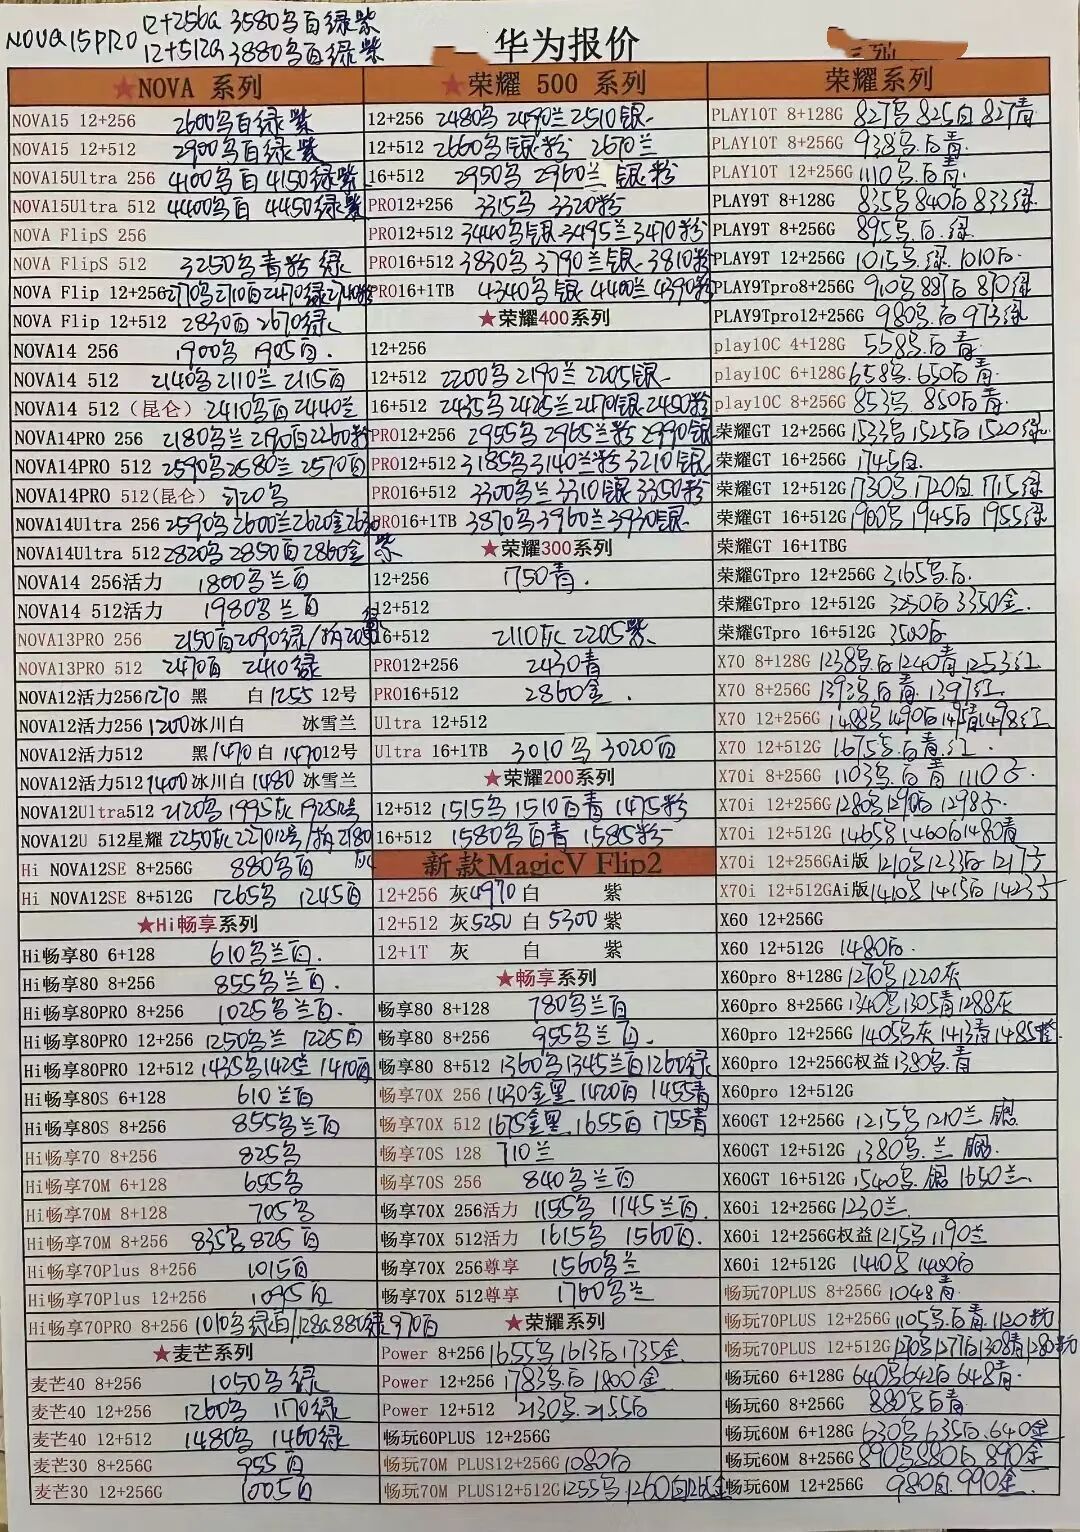 NOVA15PRO 12+256G 3580乌白绿紫
12+512G 3880乌白绿紫
华为报价
★NOVA 系列
NOVA15 12+256 2600乌白绿紫
NOVA15 12+512 2900乌白绿紫
NOVA15Ultra 256 4100乌白 4150绿紫
NOVA15Ultra 512 4400乌白 4450绿紫
NOVA FlipS 256
NOVA FlipS 512 3250乌青粉绿
NOVA Flip 12+256 2710白2470绿
NOVA Flip 12+512 2830白 2670绿
NOVA14 256 1900乌 1905白.
NOVA14 512 2140乌 2110兰 2115白
NOVA14 512（昆仑） 2410乌白 2440兰
NOVA14PRO 256 2180乌兰 2190白 2260粉
NOVA14PRO 512 2590乌 2580兰 2570白
NOVA14PRO 512(昆仑) 2720乌
NOVA14Ultra 256 2590乌 2600兰 2620金
NOVA14Ultra 512 2820乌 2850白 2860金 紫
NOVA14 256活力 1800乌兰白
NOVA14 512活力 1980乌兰白
NOVA13PRO 256 2150白 2090绿
NOVA13PRO 512 2470白 2410绿
NOVA12活力256 1270 黑 白 1255 12号
NOVA12活力256 1200 冰川白 冰雪兰
NOVA12活力512 黑 1470 白 1470 12号
NOVA12活力512 1400 冰川白 1480 冰雪兰
NOVA12Ultra512 2120乌 1995灰 1925 12号
NOVA12U 512星耀 2250灰 2270 12号/拆2180灰
Hi NOVA12SE 8+256G 880乌白
Hi NOVA12SE 8+512G 1265乌 1245白
★Hi畅享系列
Hi畅享80 6+128 610乌兰白.
Hi畅享80 8+256 855乌兰白.
Hi畅享80PRO 8+256 1025乌兰白.
Hi畅享80PRO 12+256 1250乌兰 1225白
Hi畅享80PRO 12+512 1435乌 1425兰 1410白
Hi畅享80S 6+128 610兰白
Hi畅享80S 8+256 855乌兰白
Hi畅享70 8+256 825乌
Hi畅享70M 6+128 655乌
Hi畅享70M 8+128 705乌
Hi畅享70M 8+256 835乌 825白
Hi畅享70Plus 8+256 1015白
Hi畅享70Plus 12+256 1095白
Hi畅享70PRO 8+256 1010乌绿白/128G880绿 970白
★麦芒系列
麦芒40 8+256 1050乌绿
麦芒40 12+256 1260乌 1170绿
麦芒40 12+512 1480乌 1460绿
麦芒30 8+256G 955白
麦芒30 12+256G 1005白
★荣耀 500 系列
12+256 2480乌 2490兰 2510银
12+512 2660乌银粉 2670兰
16+512 2950乌 2960兰 银粉
PRO12+256 3315乌 3320粉
PRO12+512 3440乌银 3495兰 3470粉
PRO16+512 3830乌 3790兰银 3810粉
PRO16+1TB 4340乌银 4400兰 4390粉
★荣耀400系列
12+256
12+512 2200乌 2190兰 2205银
16+512 2435乌 2425兰 2470银 2450粉
PRO12+256 2955乌 2965兰粉 2990银
PRO12+512 3185乌 3140兰粉 3210银
PRO16+512 3300乌兰 3310银 3350粉
PRO16+1TB 3870乌 3960兰 3930银
★荣耀300系列
12+256 1750青.
12+512
16+512 2110灰 2205紫
PRO12+256 2430青
PRO16+512 2860金.
Ultra 12+512
Ultra 16+1TB 3010乌 3020白
★荣耀200系列
12+512 1515乌 1510白青 1475粉
16+512 1580乌白青 1585粉
新款MagicV Flip2
12+256 灰4970 白 紫
12+512 灰5250 白 5300 紫
12+1T 灰 白 紫
★畅享系列
畅享80 8+128 780乌兰白
畅享80 8+256 955乌兰白.
畅享80 8+512 1360乌 1345兰白 1260绿
畅享70X 256 1430金黑 1420白 1455青
畅享70X 512 1675金黑 1655白 1755青
畅享70S 128 710兰
畅享70S 256 840乌兰白
畅享70X 256活力 1155乌 1145兰白.
畅享70X 512活力 1615乌 1560白.
畅享70X 256尊享 1560乌兰
畅享70X 512尊享 1760乌兰
★荣耀系列
Power 8+256 1655乌 1613白 1735金
Power 12+256 1783乌白 1800金
Power 12+512 2130乌 2155白
畅玩60PLUS 12+256G
畅玩70M PLUS12+256G 1080白
畅玩70M PLUS12+512G 1255乌 1260白
荣耀系列
PLAY10T 8+128G 827乌 825白 827青
PLAY10T 8+256G 938乌白青
PLAY10T 12+256G 1110乌白青
PLAY9T 8+128G 835乌 840白 833绿
PLAY9T 8+256G 895乌白绿
PLAY9T 12+256G 1015乌绿 1010白
PLAY9Tpro8+256G 910乌 887白 870绿
PLAY9Tpro12+256G 980乌白 973绿
play10C 4+128G 558乌白青
play10C 6+128G 658乌 650白青
play10C 8+256G 853乌 850白青
荣耀GT 12+256G 1533乌 1525白 1520绿
荣耀GT 16+256G 1745白
荣耀GT 12+512G 1730乌 1720白 1715绿
荣耀GT 16+512G 1960乌 1945白 1955绿
荣耀GT 16+1TBG
荣耀GTpro 12+256G 3165乌白
荣耀GTpro 12+512G 3250白 3350金
荣耀GTpro 16+512G 3500白
X70 8+128G 1238乌白 1240青 1253红
X70 8+256G 1393乌白青 1397红
X70 12+256G 1488乌 1490白 1495青 1498红
X70 12+512G 1675乌白青红
X70i 8+256G 1103乌白青 1110子
X70i 12+256G 1280乌 1290白 1298子
X70i 12+512G 1465乌 1460白 1480青
X70i 12+256GAi版 1210乌 1233白 1217子
X70i 12+512GAi版 1410乌 1415白 1423子
X60 12+256G
X60 12+512G 1480白
X60pro 8+128G 1270乌 1220灰
X60pro 8+256G 1340乌 1305青 1288灰
X60pro 12+256G 1405乌灰 1413青 1485橙
X60pro 12+256G权益 1380乌青
X60pro 12+512G
X60GT 12+256G 1215乌 1210兰 银
X60GT 12+512G 1380乌兰银
X60GT 16+512G 1540乌银 1650兰
X60i 12+256G 1230兰
X60i 12+256G权益 1215乌 1190兰
X60i 12+512G 1410乌 1400白
畅玩70PLUS 8+256G 1048青
畅玩70PLUS 12+256G 1105乌白青 1120
畅玩70PLUS 12+512G 1270乌 1277白 1308青 1280
畅玩60 6+128G 640乌 642白 648青
畅玩60 8+256G 880乌白青
畅玩60M 6+128G 630乌 635白 640金
畅玩60M 8+256G 890乌 880白 890金
畅玩60M 12+256G 980白 990金